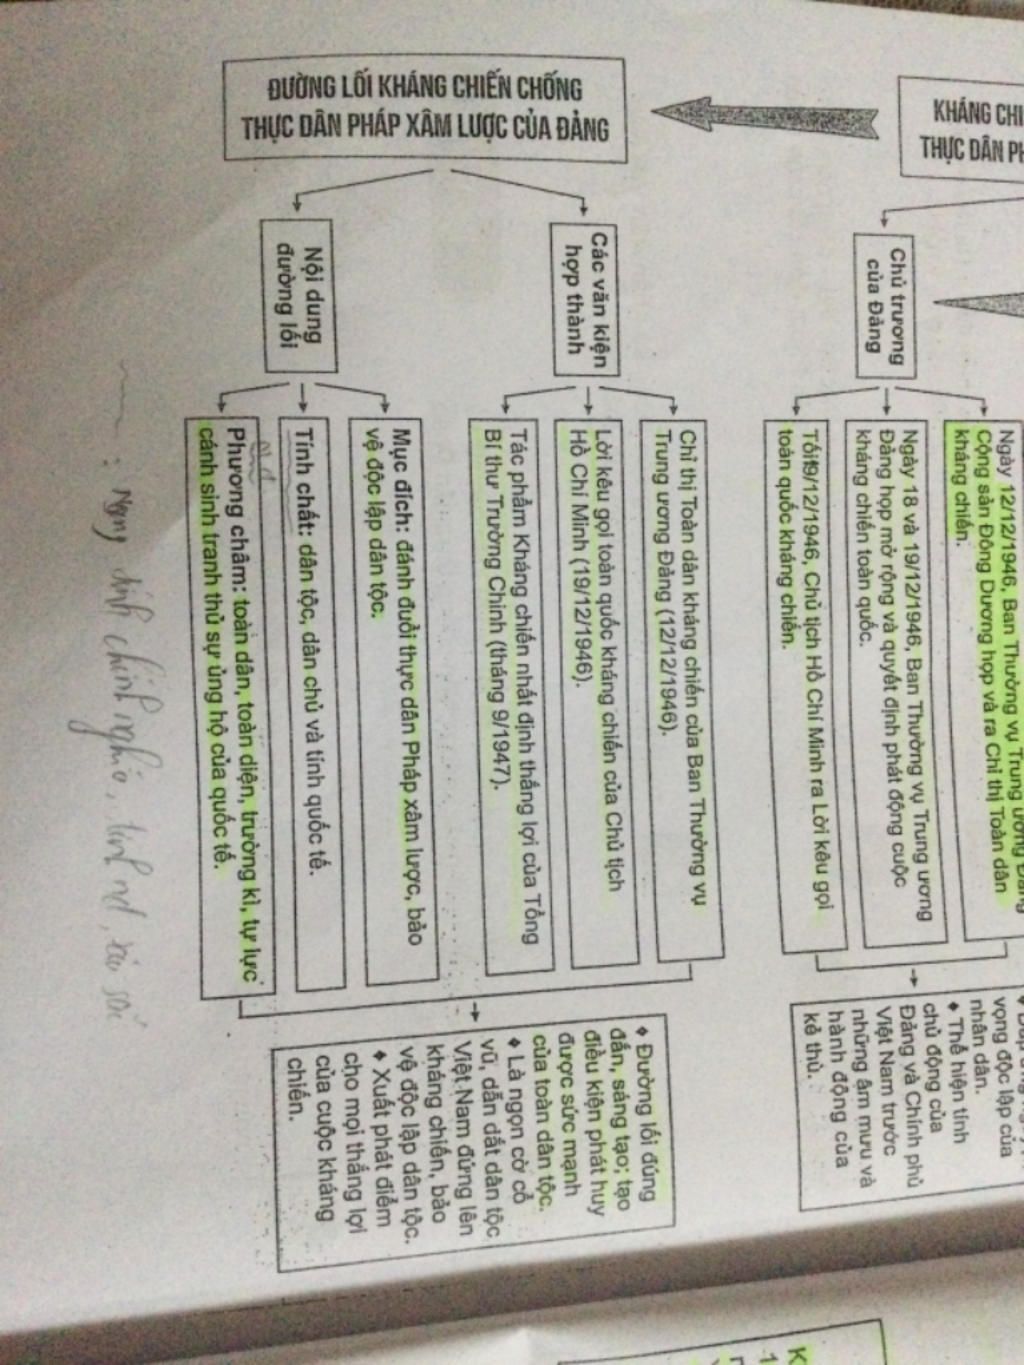 KHÁNG CHI
THỰC DÂN PH
Chủ trương
của Đảng
Ngày 12/12/1946, Ban Thường vụ Trung ương Đảng
Cộng sản Đông Dương họp và ra Chỉ thị Toàn dân
kháng chiến.
Ngày 18 và 19/12/1946, Ban Thường vụ Trung ương
Đảng họp mở rộng và quyết định phát động cuộc
kháng chiến toàn quốc.
Tối19/12/1946, Chủ tịch Hồ Chí Minh ra Lời kêu gọi
toàn quốc kháng chiến.
vọng độc lập của
nhân dân.
♦ Thể hiện tính
chủ động của
Đảng và Chính phủ
Việt Nam trước
những âm mưu và
hành động của
kẻ thù.
ĐƯỜNG LỐI KHÁNG CHIẾN CHỐNG
THỰC DÂN PHÁP XÂM LƯỢC CỦA ĐẢNG
Các văn kiện
hợp thành
Chỉ thị Toàn dân kháng chiến của Ban Thường vụ
Trung ương Đảng (12/12/1946).
Lời kêu gọi toàn quốc kháng chiến của Chủ tịch
Hồ Chí Minh (19/12/1946).
Tác phẩm Kháng chiến nhất định thắng lợi của Tổng
Bí thư Trường Chinh (tháng 9/1947).
Nội dung
đường lối
Mục đích: đánh đuổi thực dân Pháp xâm lược, bảo
vệ độc lập dân tộc.
Tính chất: dân tộc, dân chủ và tính quốc tế.
Phương châm: toàn dân, toàn diện, trường kì, tự lực
cánh sinh tranh thủ sự ủng hộ của quốc tế.
♦ Đường lối đúng
đắn, sáng tạo; tạo
điều kiện phát huy
được sức mạnh
của toàn dân tộc.
♦ Là ngọn cờ cổ
vũ, dẫn dắt dân tộc
Việt Nam đứng lên
kháng chiến, bảo
vệ độc lập dân tộc.
♦ Xuất phát điểm
cho mọi thắng lợi
của cuộc kháng
chiến.
chính nghĩa,